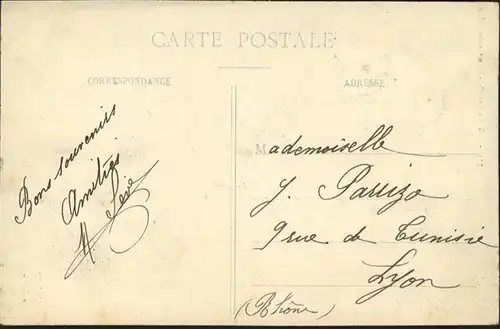 CARTE POSTALE
CORRESPONDANCE
ADRESSE
Bons souvenirs
Amitiés
Mademoiselle
J. Parrizo
9 rue de Tunisie
Lyon
(Rhône)